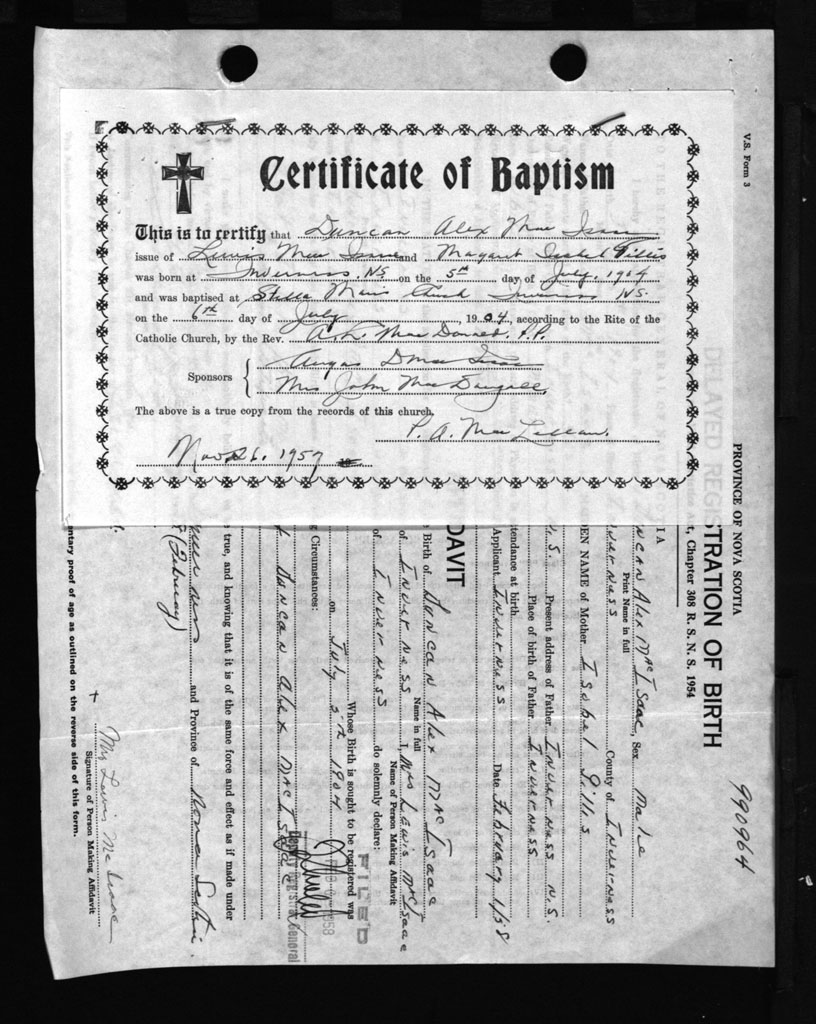 Certificate of Baptism
This is to certify that Duncan Alex Mac Isaac
issue of Lewis Mac Isaac and Margaret Isabel Gillis
was born at Inverness. N.S. on the 5th day of July. 1904
and was baptised at Stella Maris Church Inverness N.S.
on the 6th day of July 1904, according to the Rite of the
Catholic Church, by the Rev. A. L. Mac Donald. P.P.
Sponsors
Angus D Mac Isaac
Mrs John Mac Dougall
The above is a true copy from the records of this church.
P. A. Mac Lellan.
Nov. 26. 1957
V.S. Form 3
990964
PROVINCE OF NOVA SCOTIA
DELAYED REGISTRATION OF BIRTH
, Chapter 308 R. S. N. S. 1954
NCAN Alex MacIsaac, Sex Male
Print Name in full
County of Inverness
EN NAME of Mother Isobel Gillis
.S. Present address of Father Inverness N.S.
Place of birth of Father Inverness
tendance at birth
Applicant Inverness Date February 4/58
DAVIT
Birth of Duncan Alex MacIsaac
Name in full
of Inverness I, Mrs Lewis MacIsaac
Name of Person Making Affidavit
of Inverness do solemnly declare:
Whose Birth is sought to be registered was
on July 5th 1904
Circumstances:
Duncan Alex MacIsaac
FILED
1958
Deputy Registrar General
true, and knowing that it is of the same force and effect as if made under
and Province of Nova Scotia
(February)
+ Mrs Lewis McIsaac
Signature of Person Making Affidavit
entary proof of age as outlined on the reverse side of this form.